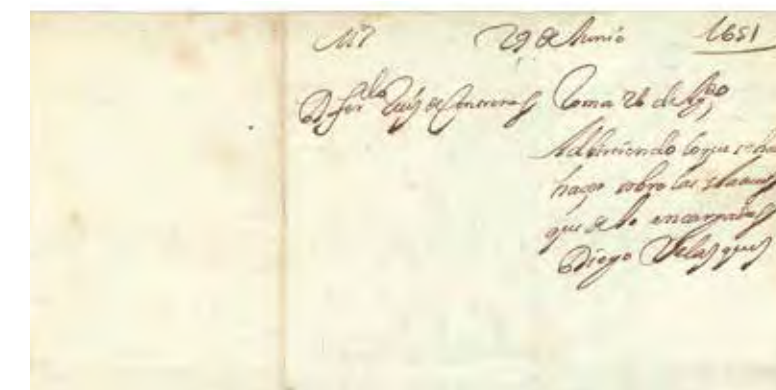 Md 29 de Junio 1651
D. ferdo Ruiz de Contreras Roma 26 de Agto
Adbirtiendo lo que se ha
hazer sobre las
que se le encargadas
Diego Velazquez